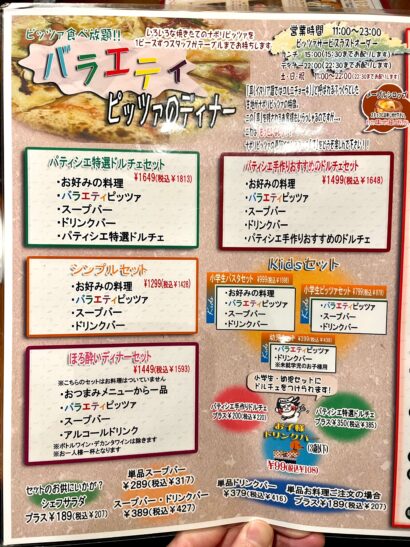 ピッツァ食べ放題!!
バラエティ
ピッツァのディナー
いろいろな焼きたてのナポリピッツァを
1ピースずつスタッフがテーブルまでお持ちします
営業時間 11:00～23:00
ピッツァサービスラストオーダー
ランチ 15:00(15:30までお配りします)
ディナー 22:00(22:30までお配りします)
土・日・祝 11:00～22:00(22:30までお配りします)
メープルシロップ
パティシエ特選ドルチェセット
¥1649(税込¥1813)
・お好みの料理
・バラエティピッツァ
・スープバー
・ドリンクバー
・パティシエ特選ドルチェ
パティシエ手作りおすすめのドルチェセット
¥1499(税込¥1648)
・お好みの料理
・バラエティピッツァ
・スープバー
・ドリンクバー
・パティシエ手作りおすすめのドルチェ
シンプルセット
¥1299(税込¥1428)
・お好みの料理
・バラエティピッツァ
・スープバー
・ドリンクバー
Kidsセット
小学生パスタセット ¥999(税込¥1098)
・お好みの料理
・バラエティピッツァ
・スープバー
・ドリンクバー
小学生ピッツァセット ¥799(税込¥878)
・バラエティピッツァ
・スープバー
・ドリンクバー
・バラエティピッツァ
・ドリンクバー
※未就学児のお子様用
ほろ酔いディナーセット
¥1449(税込¥1593)
※こちらのセットはお料理はついていません
・おつまみメニューから一品
・バラエティピッツァ
・スープバー
・アルコールドリンク
※ボトルワイン・デカンタワインは除きます
※お一人様一杯となります
小学生・幼児セットに
ドルチェをつけられます!
パティシエ手作りドルチェ
プラス¥200(税込¥220)
パティシエ特選ドルチェ
プラス¥350(税込¥385)
お子様
ドリンクバー
¥99(税込¥108)
セットのお供にいかが?
シェフサラダ
プラス¥189(税込¥207)
単品スープバー
¥289(税込¥317)
スープバー・ドリンクバー
¥389(税込¥427)
単品ドリンクバー
¥379(税込¥416)
単品お料理ご注文の場合
プラス¥189(税込¥207)